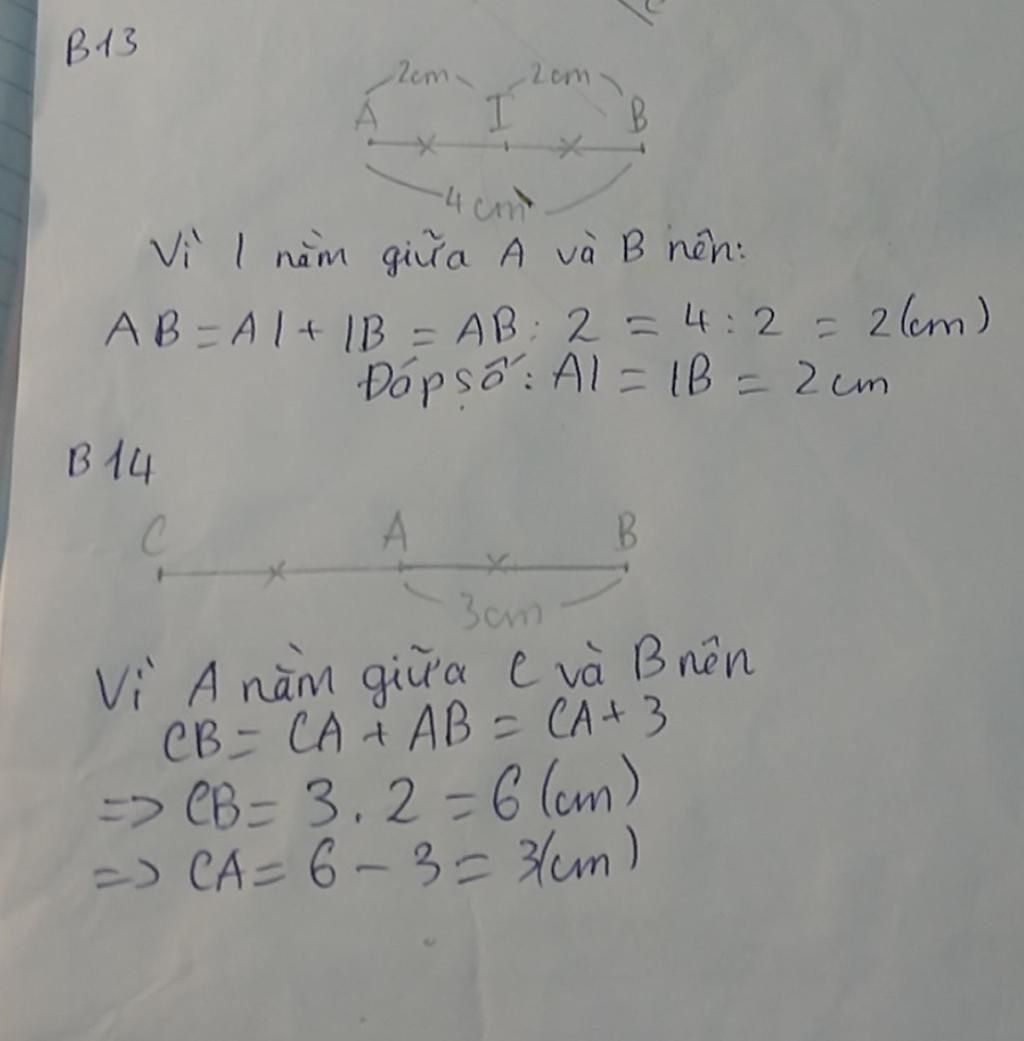 B13
2cm 2cm
A I B
4cm
Vì I nằm giữa A và B nên:
AB = AI + IB = AB : 2 = 4 : 2 = 2(cm)
Đáp số: AI = IB = 2cm
B14
C A B
3cm
Vì A nằm giữa C và B nên
CB = CA + AB = CA + 3
=> CB = 3 . 2 = 6 (cm)
=> CA = 6 - 3 = 3(cm)